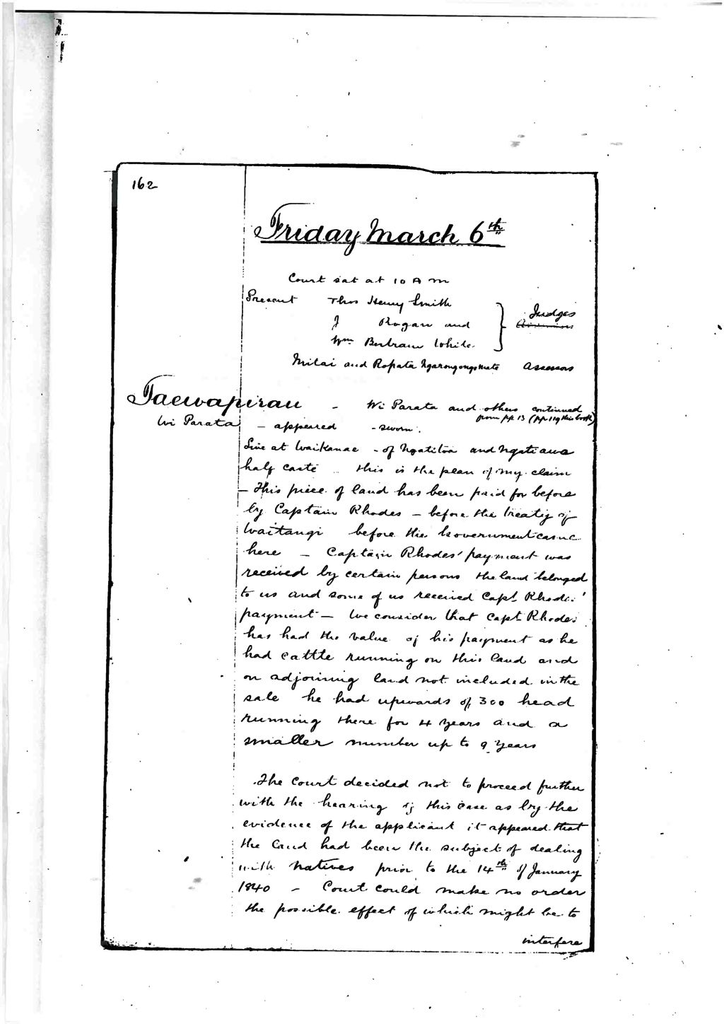 162
Friday March 6th
Court sat at 10 A m
Present Thos Henry Smith
J Rogan and
Wm Bertram White
Judges
Assessors
Mitai and Ropata Ngarongongmate Assessors
Taewapirau - Wi Parata and others continued
from pp 13 (pp 119 this book)
Wi Parata - appeared - sworn.
Live at Waikanae - of Ngatitoa and Ngatiawa
half caste - this is the plan of my claim
- This piece of land has been paid for before
by Captain Rhodes - before the treaty of
Waitangi before the Government came
here - Captain Rhodes' payment was
received by certain persons the land belonged
to us and some of us received Capt Rhodes'
payment - We consider that Capt Rhodes
has had the value of his payment as he
had cattle running on this land and
on adjoining land not included in the
sale he had upwards of 300 head
running there for 4 years and a
smaller number up to 9 years
The Court decided not to proceed further
with the hearing of this case as by the
evidence of the applicant it appeared that
the land had been the subject of dealing
with natives prior to the 14th of January
1840 - Court could make no order
the possible effect of which might be to
interfere